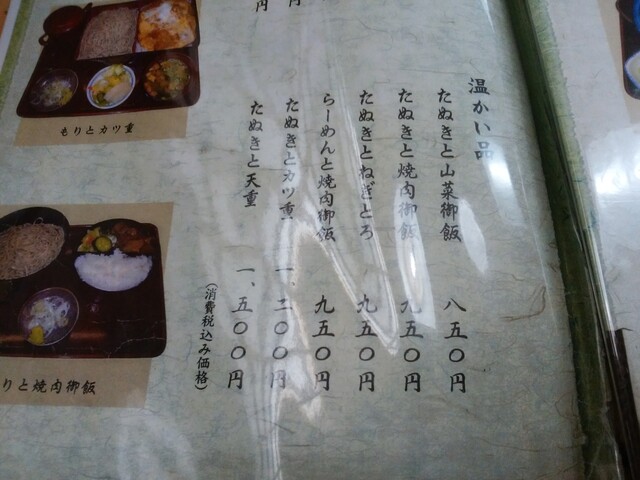 温かい品
たぬきと山菜御飯 八五〇円
たぬきと焼肉御飯 九五〇円
たぬきとねぎとろ 九五〇円
らーめんと焼肉御飯 九五〇円
たぬきとカツ重 一、二〇〇円
たぬきと天重 一、五〇〇円
(消費税込み価格)
円
円
もりとカツ重
りと焼肉御飯